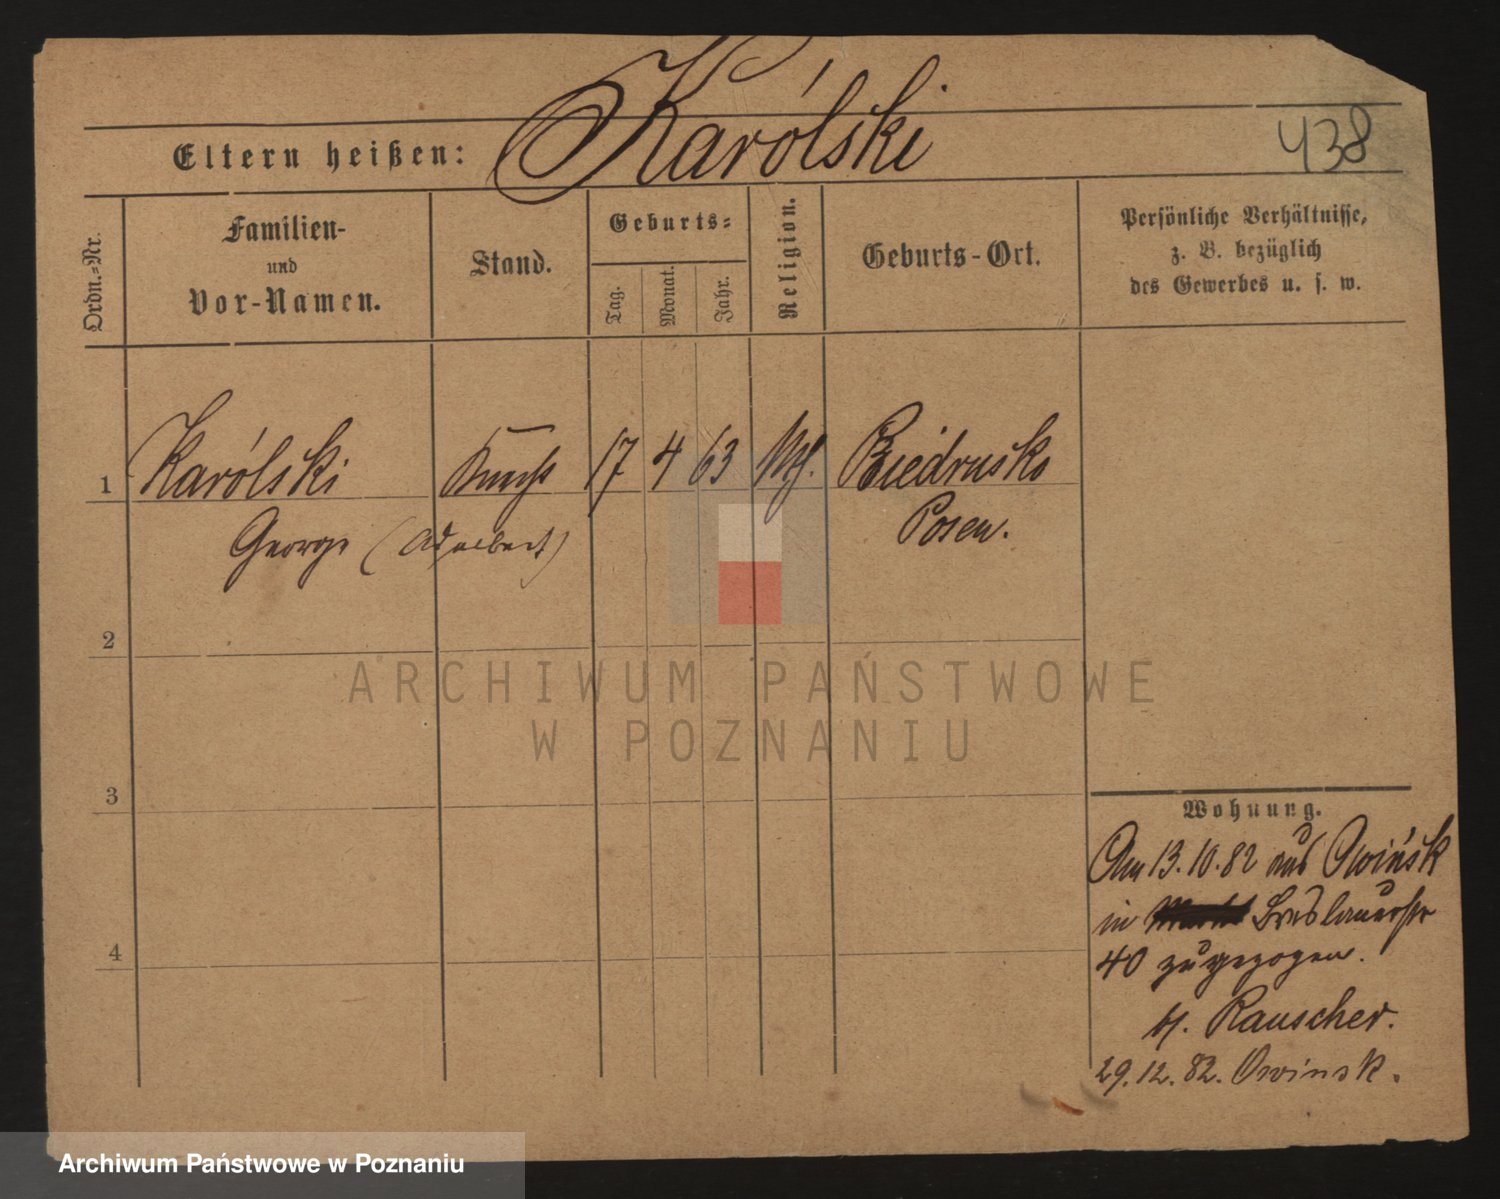 Karólski
438
Eltern heißen:
Ordn.-Nr.
Familien-
und
Vor-Namen.
Stand.
Geburts-
Tag.
Monat.
Jahr.
Religion.
Geburts-Ort.
Persönliche Verhältnisse,
z. B. bezüglich
des Gewerbes u. s. w.
1 Karólski Knecht 17 4 63 Biedrusko
George (Adalbert) Posen.
2
ARCHIWUM PAŃSTWOWE
W POZNANIU
3
4
Wohnung.
Am 13.10.82 aus Owińsk
in Breslauerstr
40 zugezogen.
b/. Rauscher.
29.12.82. Owinsk.
Archiwum Państwowe w Poznaniu